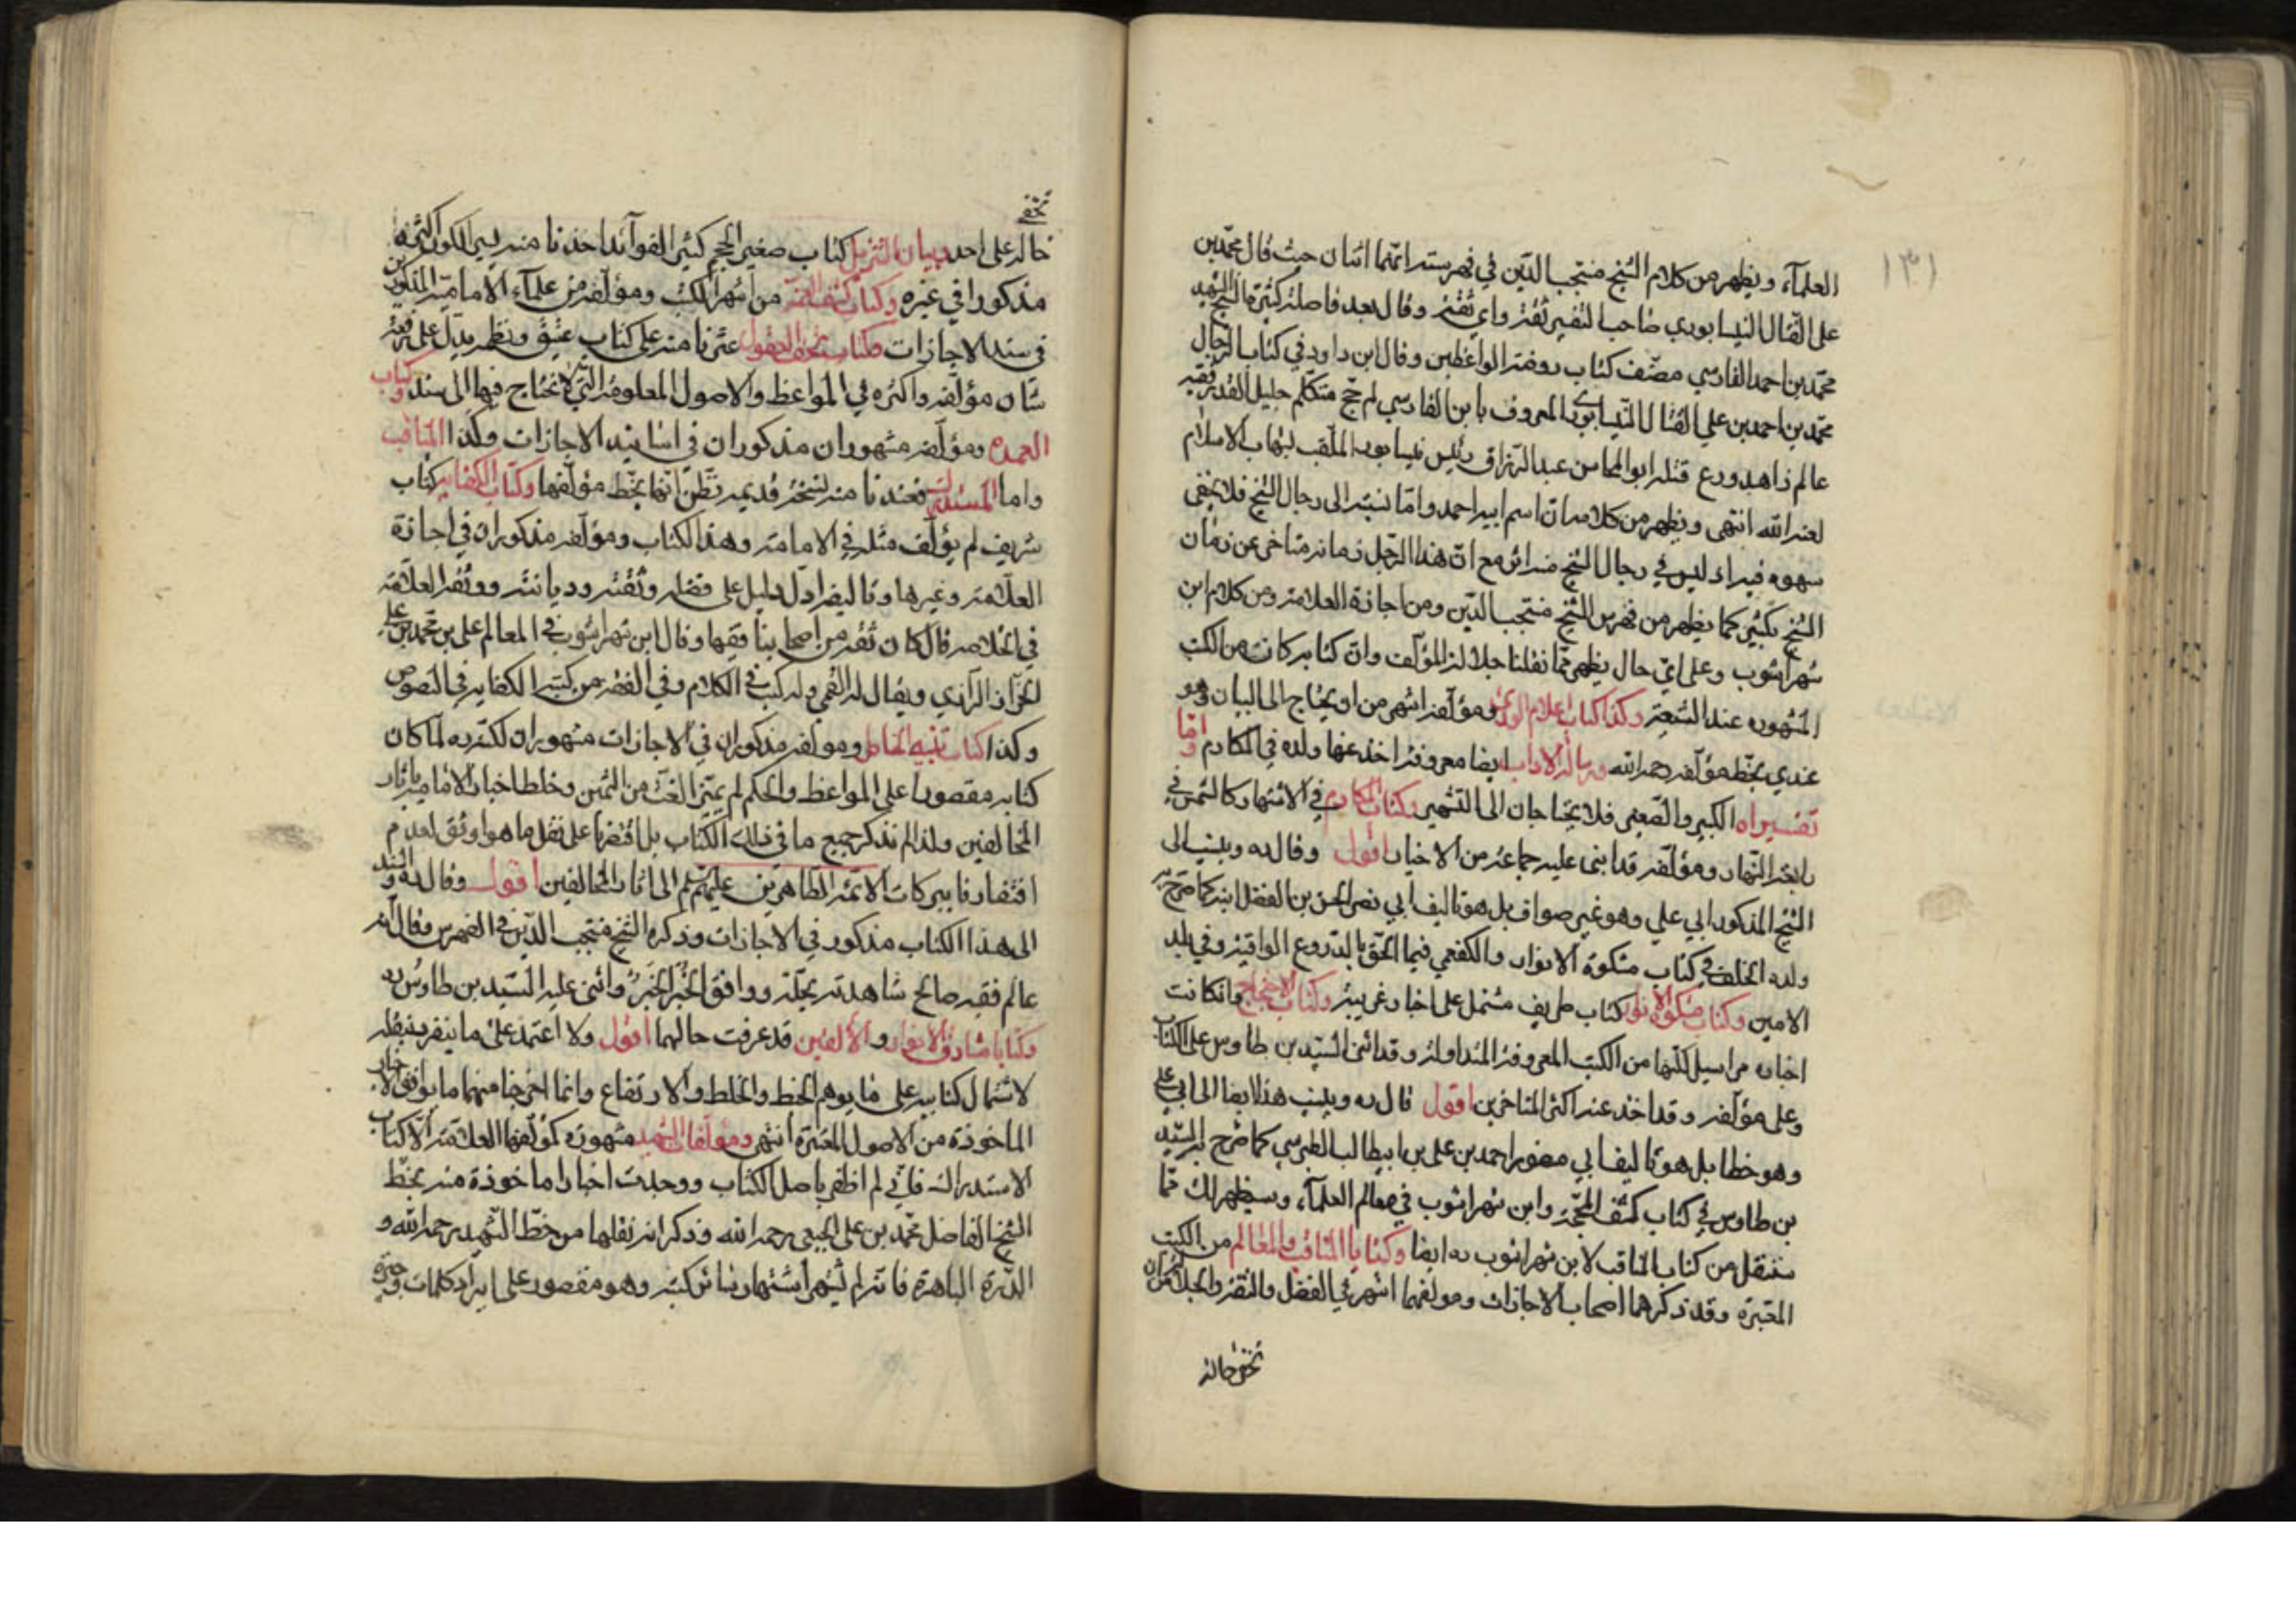 ١٣١
العلمآء ويظهر من كلام الشيخ منتجب الدّين في فهرسته انّهما اثنان حيث قال محمّد بن
علي الفتّال النيسابوري صاحب التفسير ثقة واي ثقة وقال بعد فاصلة كثيرة الشيخ الشهيد
محمّد بن احمد الفارسي مصنّف كتاب روضة الواعظين وقال ابن داود في كتاب الرّجال
محمّد بن احمد بن علي الفتّال النّيسابوري المعروف بابن الفارسي لم جخ متكلّم جليل القدر فقيه
عالم زاهد ورع قتله ابو المحاسن عبد الرّزاق رئيس نيسابور الملقّب بشهاب الاسلام
لعنه الله انتهى ويظهر من كلامه انّ اسم ابيه احمد وامّا نسبته الى رجال الشيخ فلا يخفى
سهوه فيه اذ ليس في رجال الشيخ منه اثر مع انّ هذا الرّجل زمانه متأخر عن زمان
الشيخ بكثير كما يظهر من فهرس الشيخ منتجب الدّين ومن اجازة العلامة ومن كلام ابن
شهرآشوب وعلى ايّ حال يظهر ممّا نقلنا جلالة المؤلّف وانّ كتابه كان من الكتب
المشهورة عند الشيعة وكذا كتاب اعلام الورى ومؤلّفه اشهر من ان يحتاج الى البيان وهو
عندي بخطّ مؤلّفه رحمه الله ورسالة الآداب ايضا معروفة اخذ عنها ولده في المكارم وامّا
تفسيراه الكبير والصّغير فلا يحتاجان الى التشهير وكتاب المكارم في الاشتهار كالشمس في
رابعة النّهار ومؤلّفه قد اثنى عليه جماعة من الاخيار اقول وقال ره وينسب الى
الشيخ المذكور ابي علي وهو غير صواب بل هو تاليف ابي نصر الحسن بن الفضل ابنه كما صرّح به
ولده الخلف في كتاب مشكوة الانوار والكفعمي فيما الحق بالدّروع الواقية وفي البلد
الامين وكتاب مشكوة الانوار كتاب طريف مشتمل على اخبار غريبة وكتاب الاحتجاج وان كانت
اخباره مراسيل لكنّها من الكتب المعروفة المتداولة وقد اثنى السيّد بن طاوس على الكتاب
وعلى مؤلّفه وقد اخذ عنه اكثر المتاخرين اقول قال ره وينسب هذا ايضا الى ابي علي
وهو خطا بل هو تاليف ابي منصور احمد بن علي بن ابيطالب الطبرسي كما صرّح به السيّد
بن طاوس في كتاب كشف المحجّة وابن شهرآشوب في معالم العلمآء وسيظهر لك ممّا
سننقل من كتاب المناقب لابن شهرآشوب ره ايضا وكتابا المناقب والمعالم من الكتب
المعتبرة وقد ذكرهما اصحاب الاجازات ومؤلفهما اشهر في الفضل والثقة والجلالة من ان
تخفى حاله
تخفى
حاله على احد وبيان التنزيل كتاب صغير الحجم كثير الفوآئد اخذنا منه يسيرا لكون اكثره
مذكورا في غيره وكتاب كشف الغمّة من اشهر الكتب ومؤلّفه من علمآء الاماميّة المذكورين
في سند الاجازات وكتاب تحف العقول عثرنا منه على كتاب عتيق ونظمه يدلّ على رفعة
شان مؤلّفه واكثره في المواعظ والاصول المعلومة الّتي لا نحتاج فيها الى سند وكتاب
العمدة ومؤلّفه مشهوران مذكوران في اسانيد الاجازات وكذا المناقب
واما المستدرك فعندنا منه نسخة قديمة نظنّ انّها بخطّ مؤلّفها وكتاب الكفاية كتاب
شريف لم يؤلّف مثله في الامامة وهذا الكتاب ومؤلّفه مذكوران في اجازة
العلّامة وغيرها وتاليفه ادلّ دليل على فضله وثقته وديانته ووثّقه العلّامة
في الخلاصة قال كان ثقة من اصحابنا فقيها وقال ابن شهرآشوب في المعالم علي بن محمّد بن علي
الخزّاز الرّازي ويقال له القمي وله كتب في الكلام وفي الفقه من كتبه الكفاية في النّصوص
وكذا كتاب تنبيه الخاطر ومؤلّفه مذكوران في الاجازات مشهوران لكنّه ره لما كان
كتابه مقصورا على المواعظ والحكم لم يميّز الغثّ من السّمين وخلط اخبار الاماميّة بآثار
المخالفين ولذا لم نذكر جميع ما في ذلك الكتاب بل اقتصرنا على نقل ما هو اوثق لعدم
افتقارنا ببركات الائمّة الطاهرين عليهم السّلم الى اثار المخالفين اقول وقال ره والسند
الى هذا الكتاب مذكور في الاجازات وذكره الشيخ منتجب الدّين في الفهرس وقال انّه
عالم فقيه صالح شاهدته بحلّة ووافق الخُبر الخَبَر واثنى عليه السّيد بن طاوس ره
وكتابا مشارق الانوار والالفين قد عرفت حالهما اقول ولا اعتمد على ما يتفرد بنقله
لاشتمال كتابيه على ما يوهم الخبط والخلط والارتفاع وانما اخرجنا منهما ما يوافق الاخبار
الماخوذة من الاصول المعتبرة انتهى ومؤلفات الشهيد مشهورة كمؤلّفها العلامة الّا كتاب
الاستدراك فانّي لم اظفر باصل الكتاب ووجدت اخبارا ماخوذة منه بخطّ
الشيخ الفاضل محمّد بن علي الجبعي رحمه الله وذكر انه نقلها من خطّ الشّهيد رحمه الله و
الدّرة الباهرة فانّه لم يشتهر اشتهار سائر كتبه وهو مقصور على ايراد كلمات وجيزة